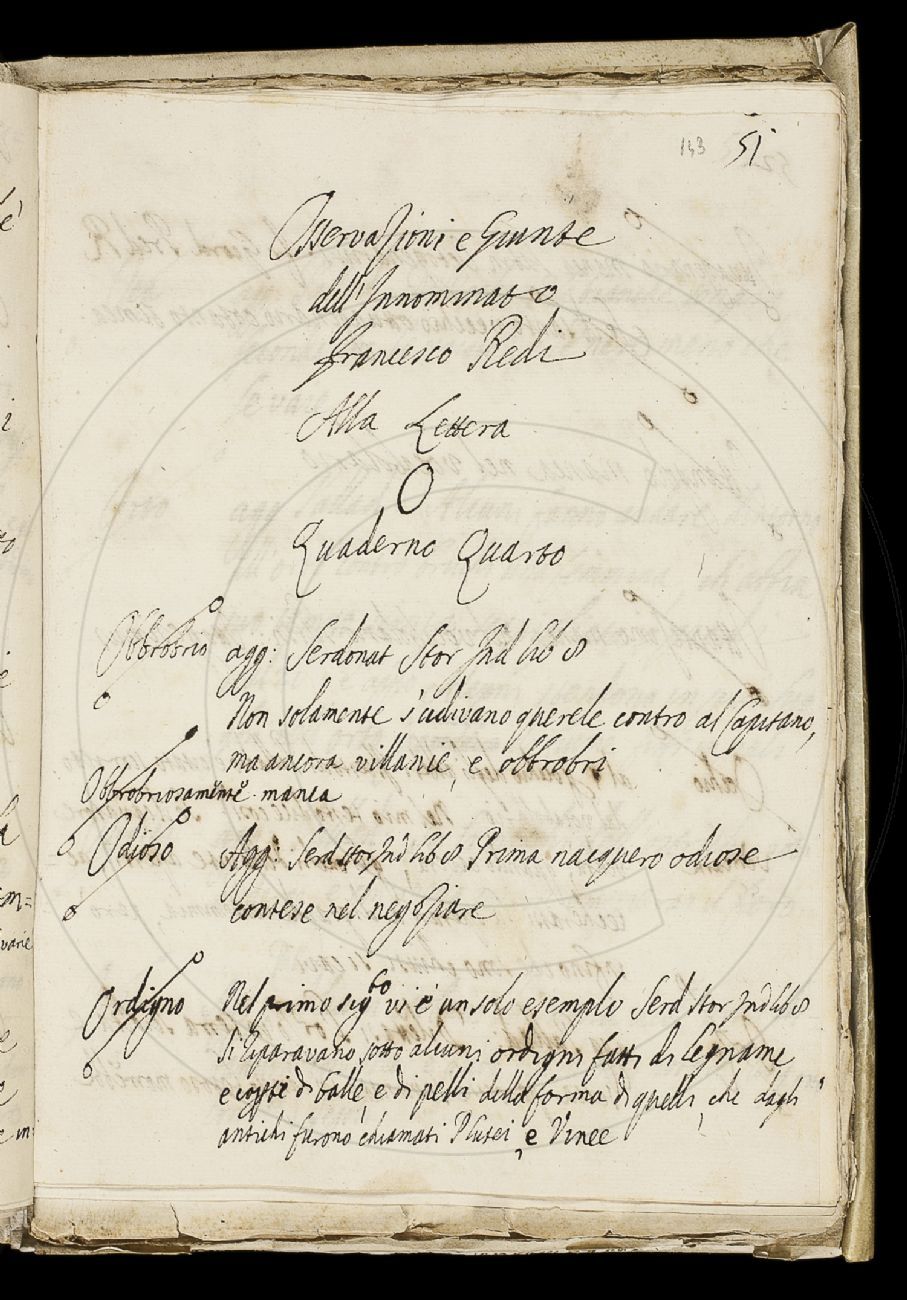 143 51
Osservazioni e Giunte
dell'Innominato
Francesco Redi
Alla Lettera
O
Quaderno Quarto
Obbrobrio agg: Serdonat Stor Ind lib 8
Non solamente s'udivano querele contro al Capitano,
ma ancora villanie, e obbrobri
Obbrobriosamente manca
Odioso Agg: Serd stor Ind lib 8 Prima nacquero odiose
contese nel negoziare
Ordigno Nel primo sig.to vi è un solo esemplo Serd Stor Ind lib 8
Si riparavano sotto alcuni ordigni fatti di legname
e coperti di balle, e di pelli della forma di quelli, che dagli
antichi furono chiamati Plutei, e Vinee